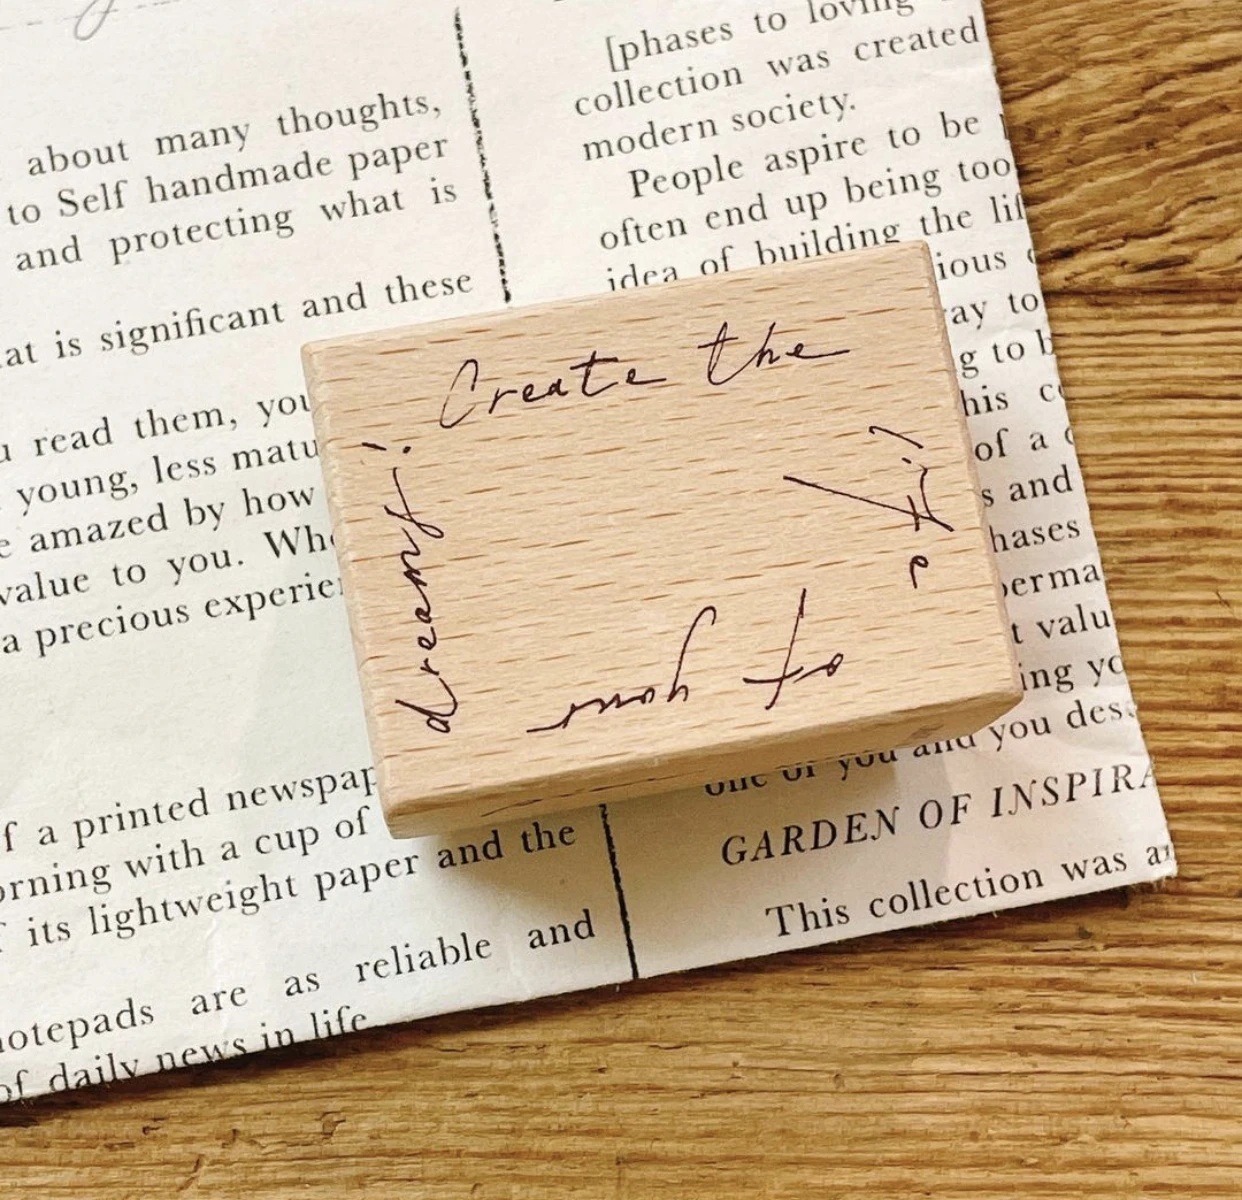 about many thoughts,
to Self handmade paper
and protecting what is
at is significant and these
read them, you
young, less matu
amazed by how
value to you. Wh
a precious experie
f a printed newspap
orning with a cup of
its lightweight paper and the
notepads are as reliable and
of daily news in life
[phases to loving
collection was created
modern society.
People aspire to be
often end up being too
idea of building the lif
ious
ay to
g to b
his c
of a
s and
hases
perma
t valu
ing yo
one of you and you des
GARDEN OF INSPIRA
This collection was a
Create the
life
of your
dreams!